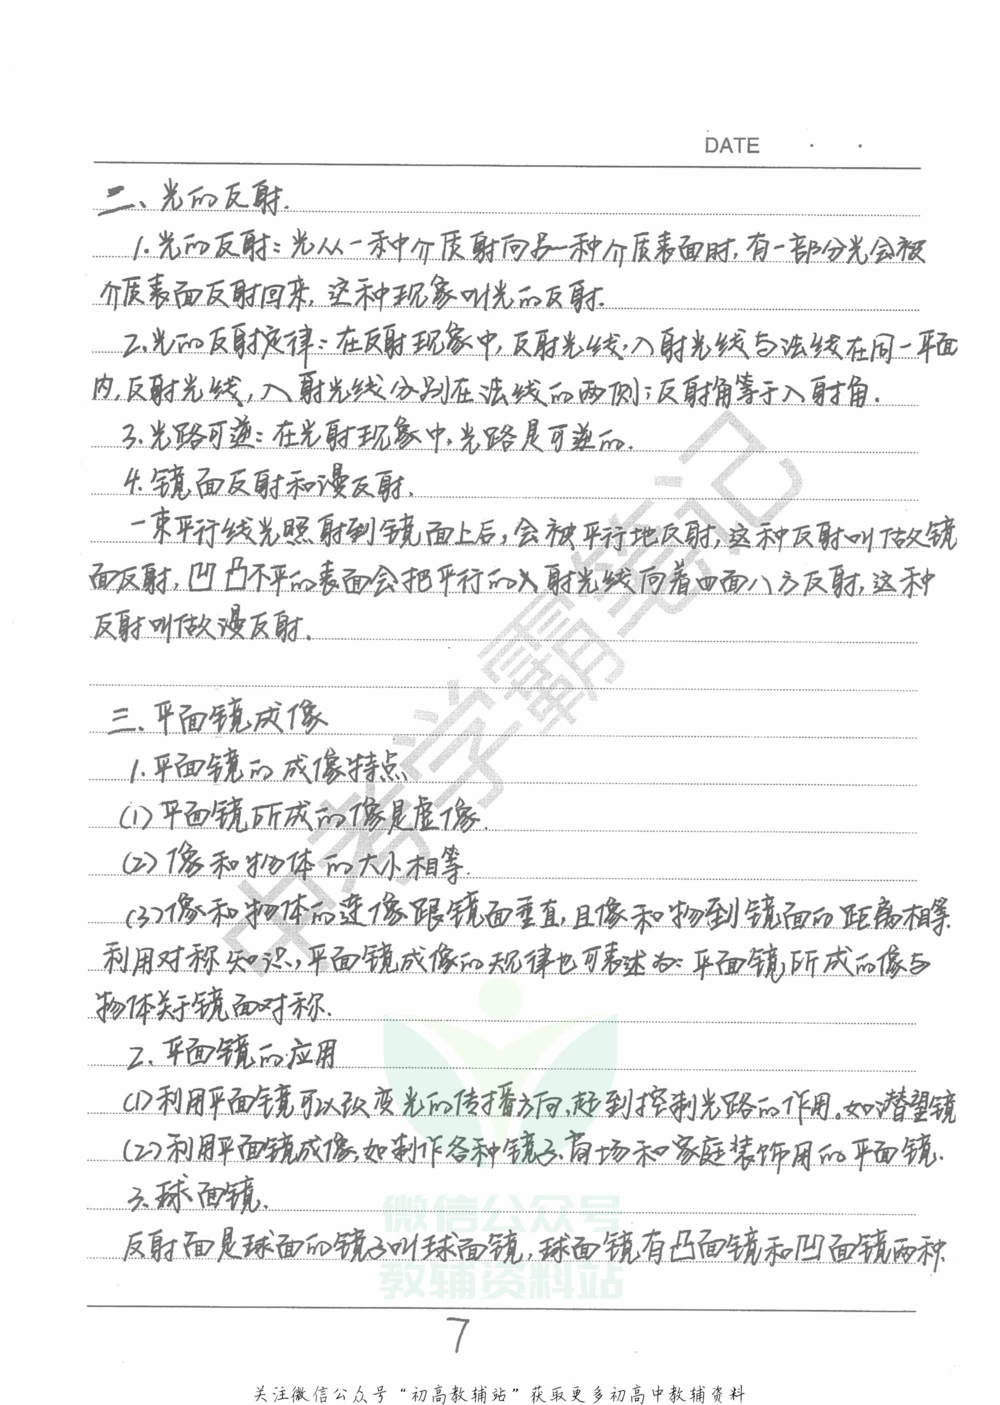 DATE · ·
二、光的反射.
1.光的反射:光从一种介质射向另一种介质表面时,有一部分光会被
介质表面反射回来,这种现象叫光的反射.
2.光的反射定律:在反射现象中,反射光线,入射光线与法线在同一平面
内,反射光线,入射光线分别在法线的两侧;反射角等于入射角.
3.光路可逆:在光射现象中,光路是可逆的.
4.镜面反射和漫反射.
一束平行线光照射到镜面上后,会被平行地反射,这种反射叫做镜
面反射,凹凸不平的表面会把平行的入射光线向着四面八方反射,这种
反射叫做漫反射.
三、平面镜成像
1.平面镜的成像特点
(1)平面镜所成的像是虚像.
(2)像和物体的大小相等.
(3)像和物体的连像跟镜面垂直,且像和物到镜面的距离相等.
利用对称知识,平面镜成像的规律也可表述为:平面镜所成的像与
物体关于镜面对称.
2、平面镜的应用
(1)利用平面镜可以改变光的传播方向,起到控制光路的作用。如潜望镜
(2)利用平面镜成像,如制作各种镜子.商场和家庭装饰用的平面镜.
3、球面镜.
反射面是球面的镜子叫球面镜,球面镜有凸面镜和凹面镜两种.
7
中考学霸笔记
微信公众号
教辅资料站
关注微信公众号“初高教辅站”获取更多初高中教辅资料